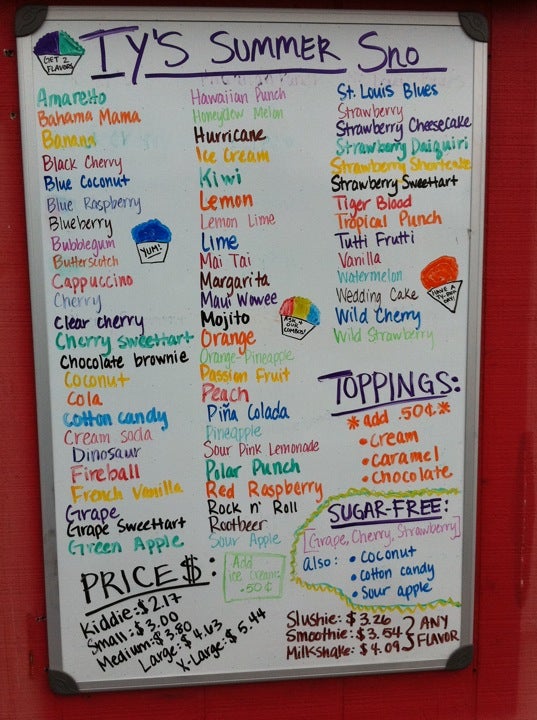 GET 2 FLAVORS
Ty's Summer Sno
Amaretto
Bahama Mama
Banana
Black Cherry
Blue Coconut
Blue Raspberry
Blueberry
Bubblegum
Butterscotch
Cappuccino
Cherry
Clear cherry
Cherry Sweethart
Chocolate brownie
Coconut
Cola
Cotton candy
Cream soda
Dinosaur
Fireball
French Vanilla
Grape
Grape Sweethart
Green Apple
YUM!
Hawaiian Punch
Honeydew Melon
Hurricane
Ice Cream
Kiwi
Lemon
Lemon Lime
Lime
Mai Tai
Margarita
Maui Wowee
Mojito
Orange
Orange-Pineapple
Passion Fruit
Peach
Piña Colada
Pineapple
Sour Pink Lemonade
Polar Punch
Red Raspberry
Rock n' Roll
Rootbeer
Sour Apple
ASK 4 OUR COMBOS!
St. Louis Blues
Strawberry
Strawberry Cheesecake
Strawberry Daiquiri
Strawberry Shortcake
Strawberry Sweethart
Tiger Blood
Tropical Punch
Tutti Frutti
Vanilla
Watermelon
Wedding Cake
Wild Cherry
Wild Strawberry
HAVE A
DAY!
TOPPINGS:
*add .50¢*
• Cream
• Caramel
• Chocolate
SUGAR-FREE:
[Grape, Cherry, Strawberry]
also: • coconut
• cotton candy
• sour apple
PRICE$:
Add ice cream: .50¢
Kiddie: $2.17
Small: $3.00
Medium: $3.80
Large: $4.63
X-Large: $5.44
Slushie: $3.26
Smoothie: $3.54
Milkshake: $4.09
ANY FLAVOR